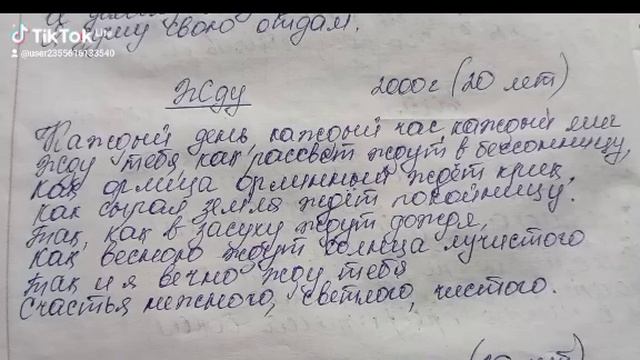 душу свою отдам.
TikTok
@user2355616133540
Жду 2000г (20 лет)
Каждый день, каждый час, каждый миг
Жду тебя, как рассвет ждут в бессонницу,
как орлица орлиный ждёт крик,
как сырая земля ждёт покойницу.
Так, как в засуху ждут дождя,
как весною ждут солнца лучистого
так и я вечно жду тебя
счастья нежного, светлого, чистого.